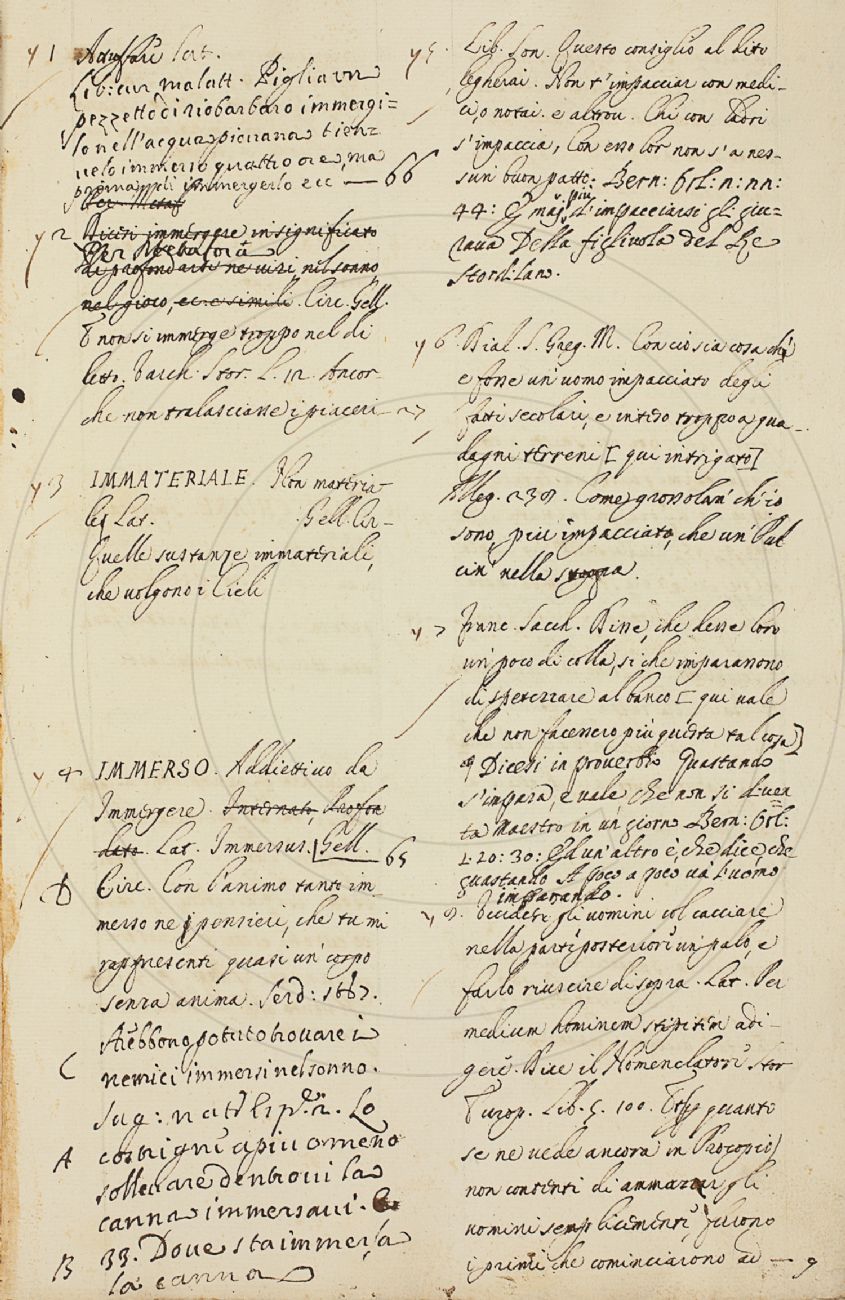 y 1 Attuffare Lat.
Lib: cur. malatt. Piglia un
pezzetto di riobarbaro immergi=
lo nell'acqua piovana tien=
velo immerso quattro ore, ma
prima immergerlo ecc — 66
y 2 Dicesi immergere in significato
Per Metafora
di profondarsi ne vizi, nel sonno
nel gioco, ec. e simili. Circ. Gell.
E non si immerge troppo nel di
letto. Varch. Stor. L. 12. Ancor
che non tralasciasse i piaceri
y 3 IMMATERIALE. Non materia-
le Lat. Gell. Cir-
Quelle sustanze immateriali,
che volgono i Cieli
y 4 IMMERSO. Addiettivo da
Immergere. Internato, Profon
dato. Lat. Immersus. Gell. 65
D Circ. Con l'animo tanto im-
merso ne pensieri, che tu mi
rappresenti quasi un' corpo
senza anima. Serd: 167.
C Arebbono potuto trovare i
nemici immersi nel sonno.
Sag: nat: Esp:
A costrigne a più o meno
sollevare dentrovi la
canna immersavi. E
B 33. Dove sta immersa
la canna
y 5. Lib. Son. Questo consiglio al dito
legherai. Non t'impacciar con medi-
ci, o notai. e altrou. Chi con ladri
s'impaccia, Con esso lor non s'a nes-
sun' buon patto. Bern: Orl: n: nn:
44: E mai v. più d'impacciarsi gli giu=
rava Della figlivola del Re
Stordilano.
y 6. Dial. S. Greg. M. Con ciò sia cosa ch'
e fosse un' uomo impacciato degli
fatti secolari, e inteso troppo a gua-
dagni terreni [qui intrigato]
Alleg. 239. Come grossolan' ch'io
sono, più impacciato, che un' Pul
cin' nella stoppa.
y 7 Franc. Sacch. Disse, che desse loro
un' poco di colla, si che imparassono
di spetezzare al banco [qui vale
che non facessero più questa tal cosa]
Dicesi in proverbio Guastando
s'impara, e vale, che non si diven
ta Maestro in un giorno Bern: Orl:
1. 20: 30: Ed un' altro è, che dice, che
guastando A poco a poco va l'uomo
imparando.
y 8. Uccidere gli uomini col cacciare
nelle parti posteriori un' palo, e
farlo riuscire di sopra. Lat. Per
medium hominem stipitem adi-
gere. Dice il Nomenclatore Stor
Europ. Lib. 5. 100. quanto
se ne vede ancora in Procopio)
non contenti di ammazzar gli
uomini semplicemente, furono
i primi che cominciarono ad — 9